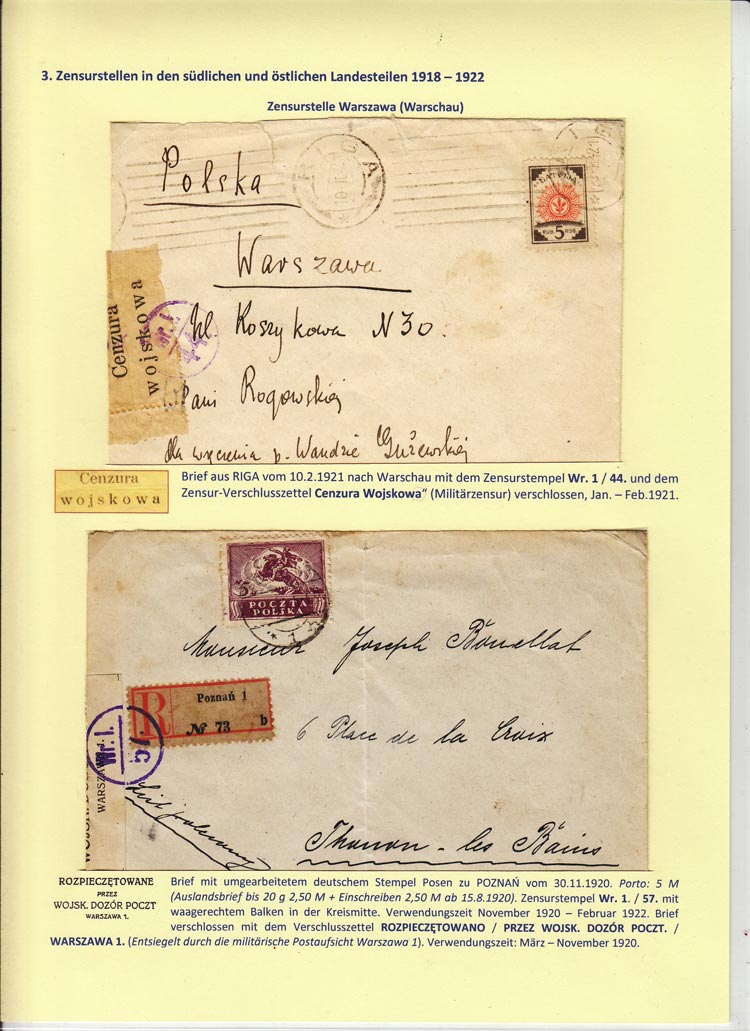 3. Zensurstellen in den südlichen und östlichen Landesteilen 1918 – 1922
Zensurstelle Warszawa (Warschau)
RIGA
Polska
LATVIJA
RUB. 5 RUB.
Warszawa
Cenzura
wojskowa
Wr. 1.
44
Ul Koszykowa N 30.
Pani Rogowskiej
dla wręczenia p. Wandzie Gużewskiej
Cenzura
wojskowa
Brief aus RIGA vom 10.2.1921 nach Warschau mit dem Zensurstempel Wr. 1 / 44. und dem
Zensur-Verschlusszettel Cenzura Wojskowa“ (Militärzensur) verschlossen, Jan. – Feb.1921.
5
POCZTA
POLSKA
Monsieur Joseph
R
Poznań 1
№ 73 b
6 Place de la Croix
Wr. I.
57.
WARSZAWA
List polecony
Thonon - les Bains
ROZPIECZĘTOWANE
PRZEZ
WOJSK. DOZÓR POCZT
WARSZAWA 1.
Brief mit umgearbeitetem deutschem Stempel Posen zu POZNAŃ vom 30.11.1920. Porto: 5 M
(Auslandsbrief bis 20 g 2,50 M + Einschreiben 2,50 M ab 15.8.1920). Zensurstempel Wr. 1. / 57. mit
waagerechtem Balken in der Kreismitte. Verwendungszeit November 1920 – Februar 1922. Brief
verschlossen mit dem Verschlusszettel ROZPIECZĘTOWANO / PRZEZ WOJSK. DOZÓR POCZT. /
WARSZAWA 1. (Entsiegelt durch die militärische Postaufsicht Warszawa 1). Verwendungszeit: März – November 1920.